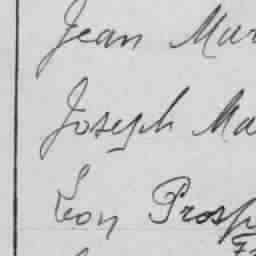 Jean Mar
Joseph Ma
Léon Prosp